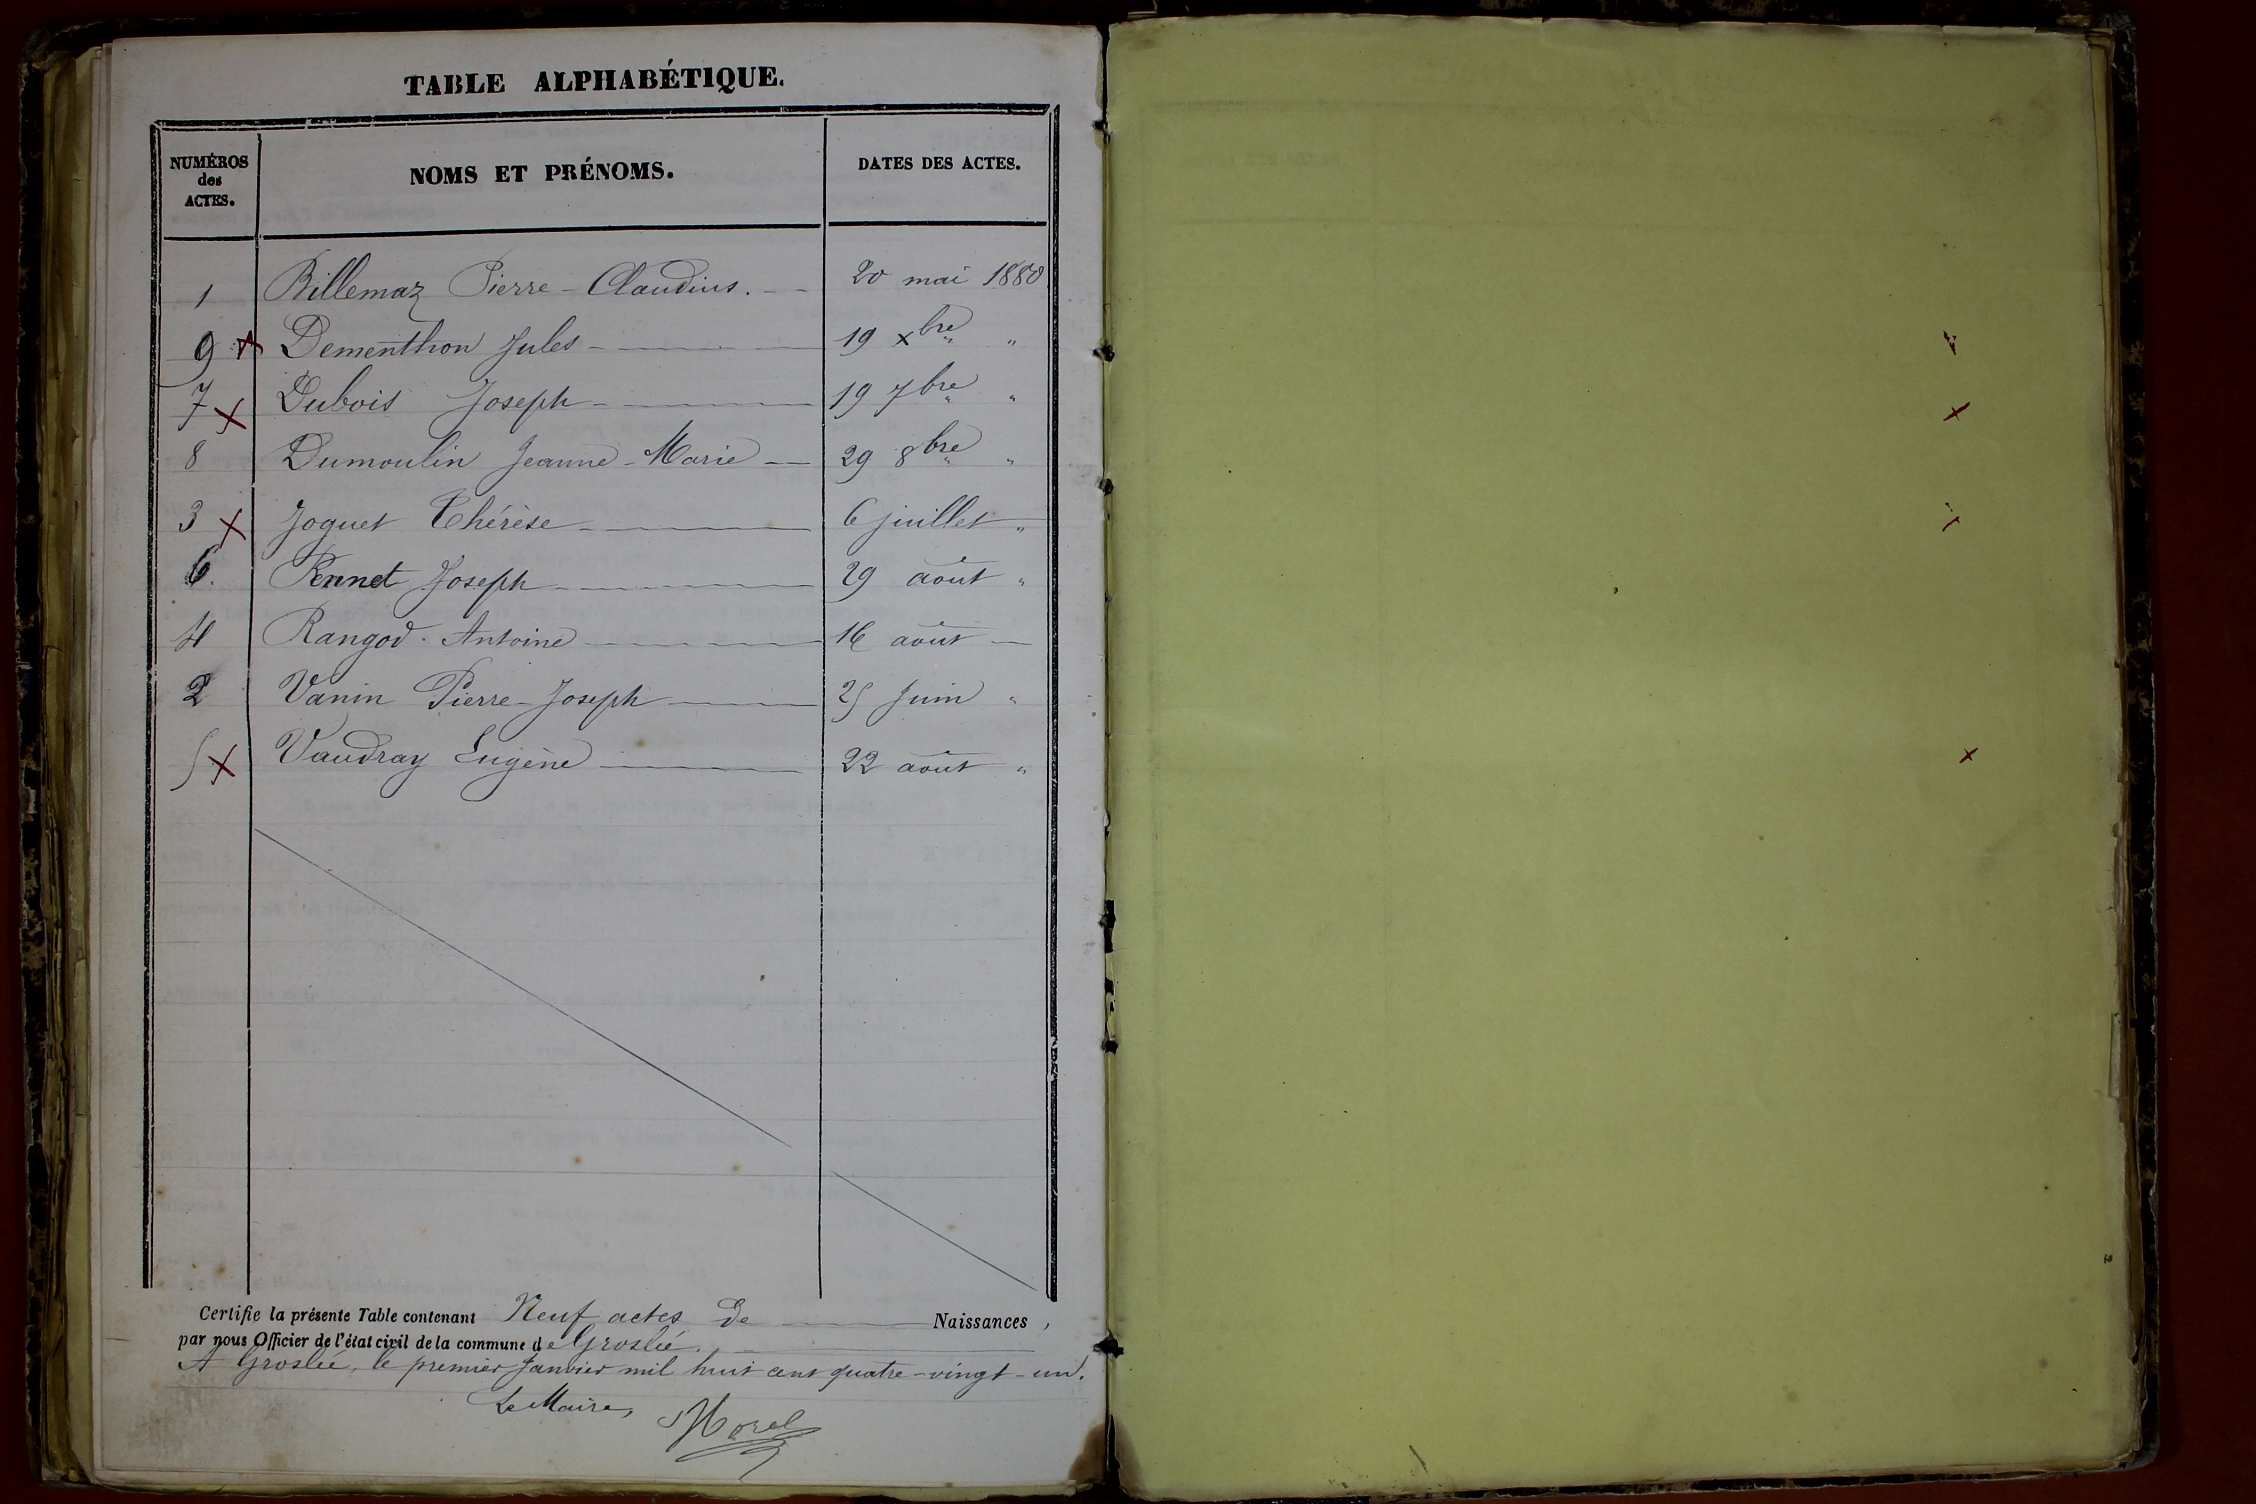 TABLE ALPHABÉTIQUE.
NUMÉROS des ACTES. NOMS ET PRÉNOMS. DATES DES ACTES.
1 Billemaz Pierre-Claudius. 20 mai 1880
9 x Dementhon Jules 19 xbre " "
7 x Dubois Joseph 19 7bre " "
8 Dumoulin Jeanne-Marie 29 8bre " "
3 x Joguet Thérèse 6 juillet "
6. Pennet Joseph 29 août "
4 Rangod Antoine 16 août —
2 Vanin Pierre-Joseph 25 Juin "
5 x Vaudray Eugène 22 août "
Certifie la présente Table contenant Neuf actes de Naissances,
par nous Officier de l'état civil de la commune de Groslée.
A Groslée, le premier Janvier mil huit cent quatre-vingt-un.
Le Maire, Morel